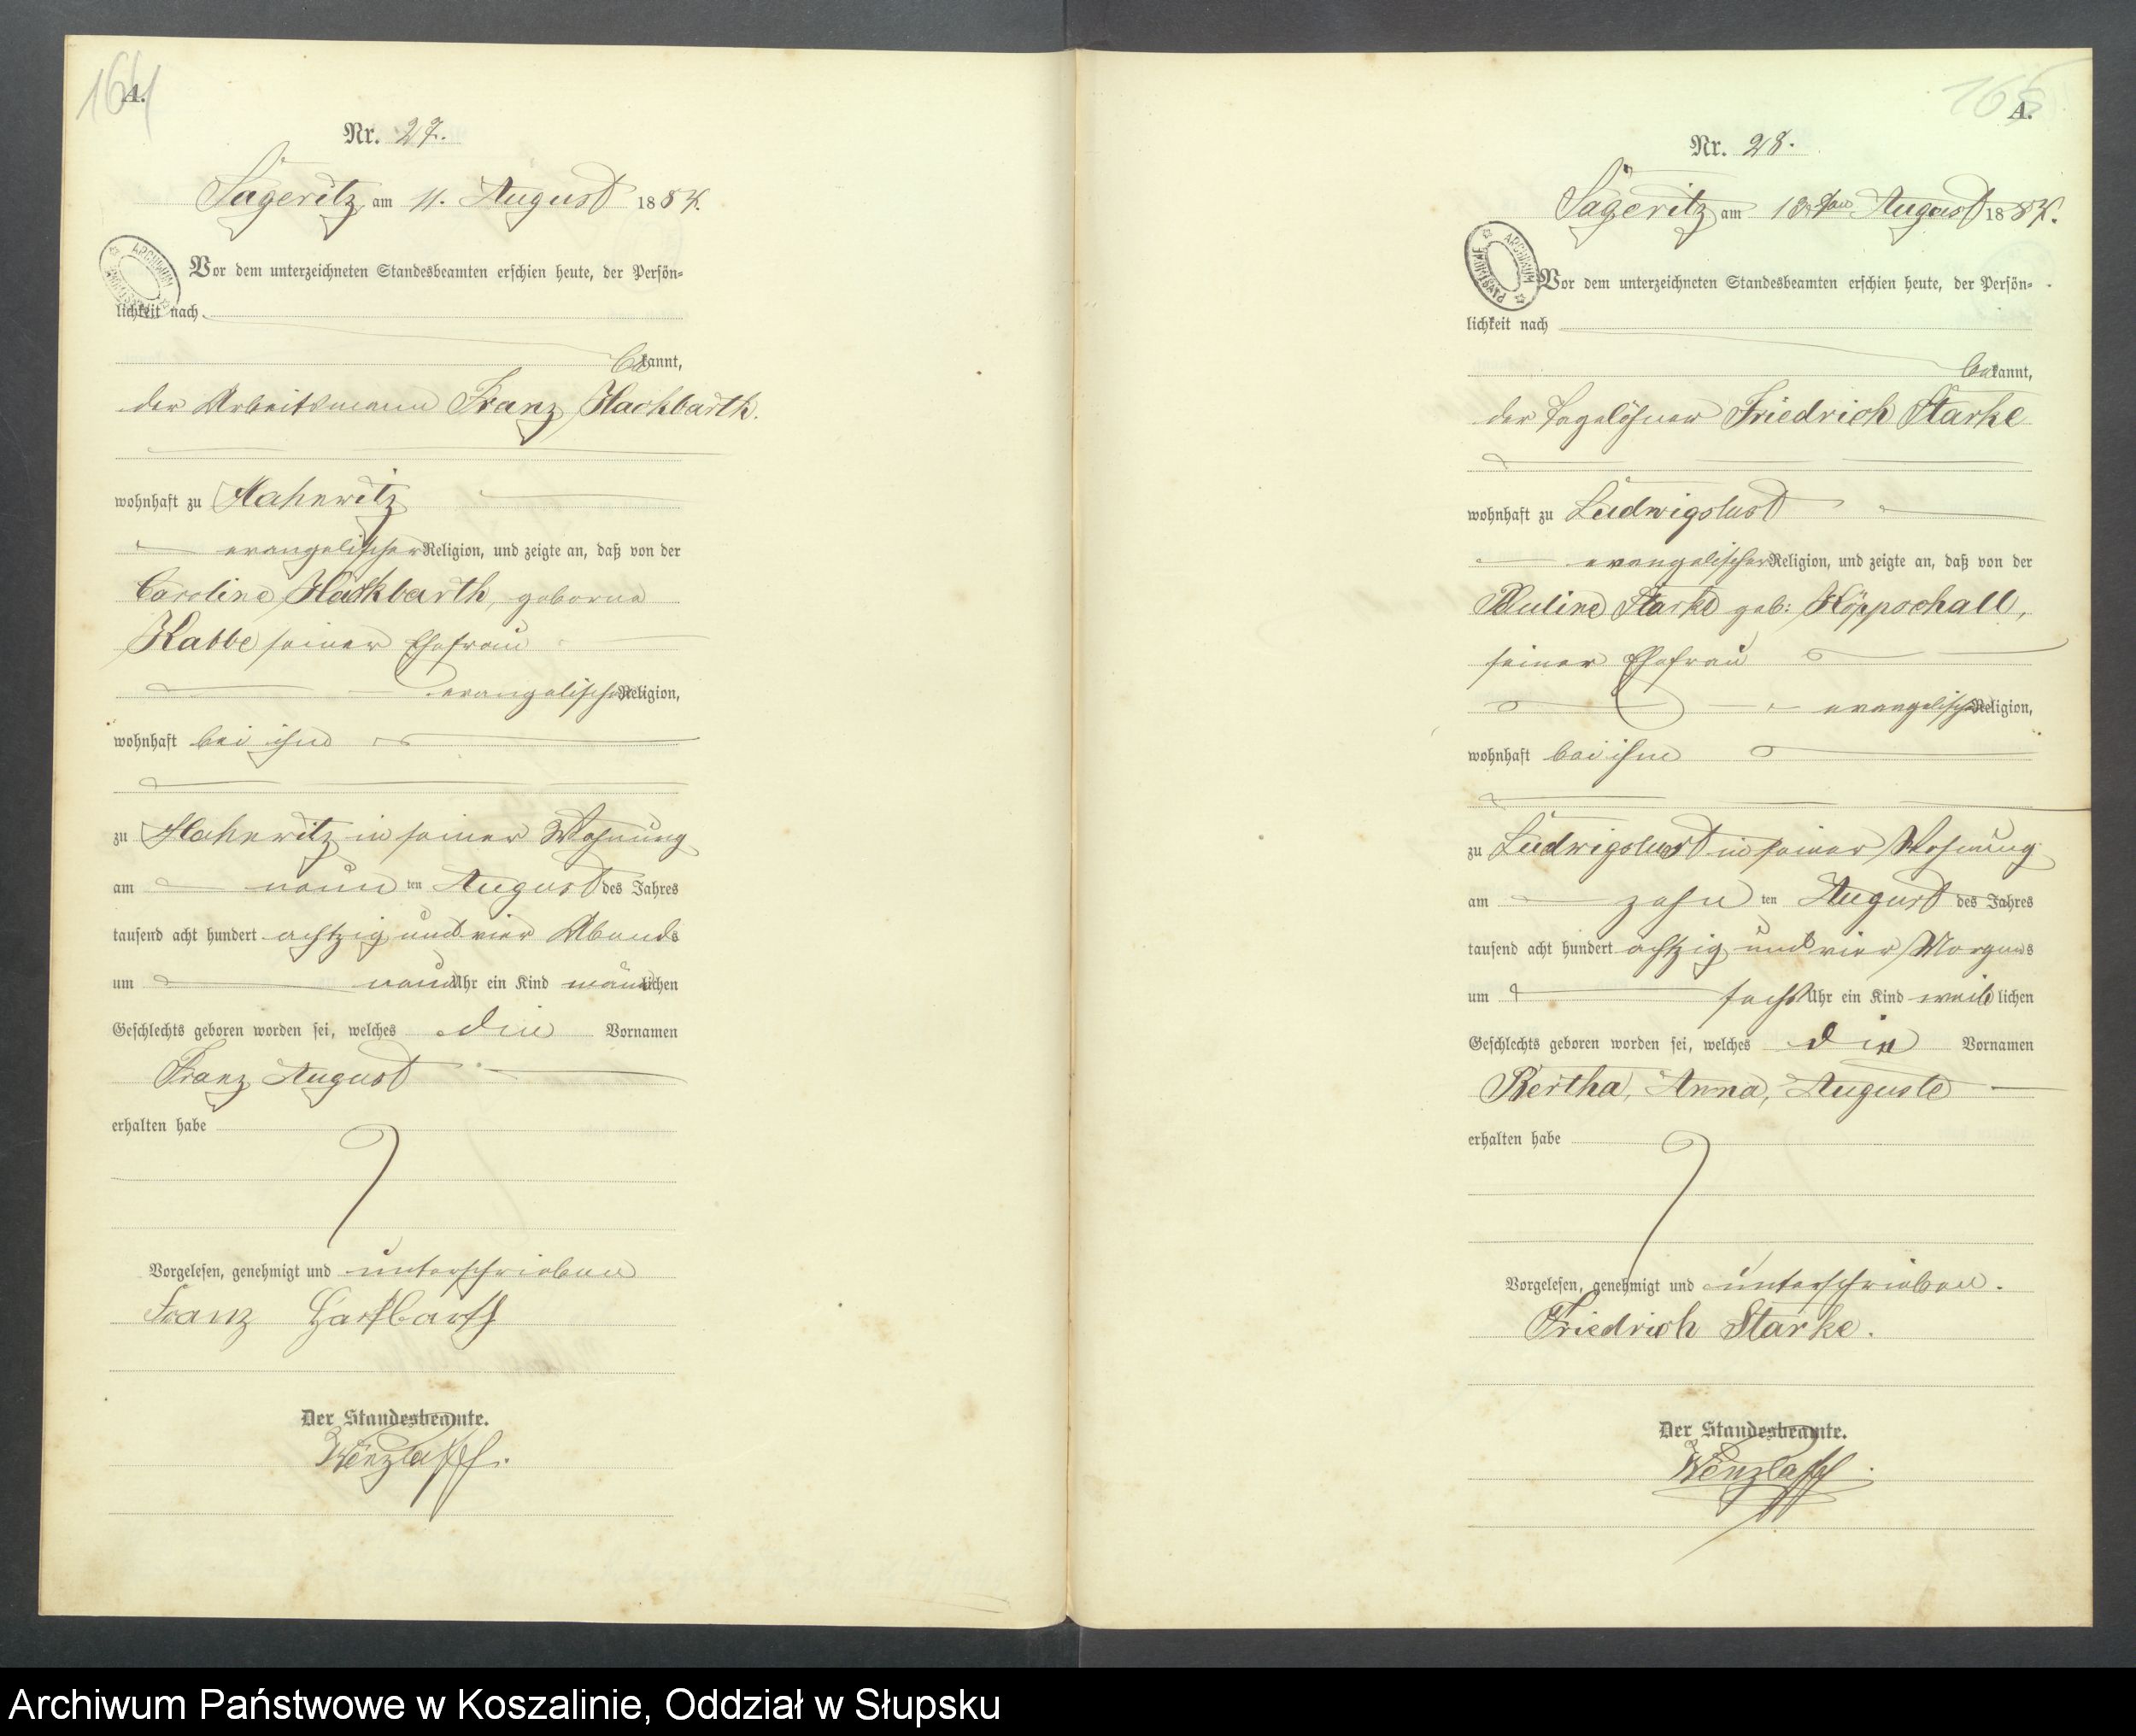 164
A.
Nr. 27.
Sageritz, am 11. August 1884.
Vor dem unterzeichneten Standesbeamten erschien heute, der Persön-
lichkeit nach
bekannt,
der Arbeitsmann Franz Hackbarth.
wohnhaft zu Hahnwitz
evangelischer Religion, und zeigte an, daß von der
Caroline Hackbarth, geborne
Rabbe seiner Ehefrau
evangelischer Religion,
wohnhaft bei ihm
zu in seiner Wohnung
am neun ten August des Jahres
tausend acht hundert achtzig und vier Abends
um neun Uhr ein Kind männlichen
Geschlechts geboren worden sei, welches die Vornamen
Franz August
erhalten habe
Vorgelesen, genehmigt und unterschrieben
Franz Hackbarth
Der Standesbeamte.
Wenzlaff.
165
A.
Nr. 28.
Sageritz am August 1884.
Vor dem unterzeichneten Standesbeamten erschien heute, der Persön-
lichkeit nach
bekannt,
der Tagelöhner Friedrich Starke
wohnhaft zu Ludwigslust
evangelischer Religion, und zeigte an, daß von der
Auline Starke geb: Köppschall,
seiner Ehefrau
evangelischer Religion,
wohnhaft bei ihm
zu Ludwigslust in seiner Wohnung
am zehn ten August des Jahres
tausend acht hundert achtzig und vier Morgens
um sechs Uhr ein Kind weiblichen
Geschlechts geboren worden sei, welches die Vornamen
Bertha, Anna, Auguste
erhalten habe
Vorgelesen, genehmigt und unterschrieben.
Friedrich Starke.
Der Standesbeamte.
Wenzlaff.
Archiwum Państwowe w Koszalinie, Oddział w Słupsku